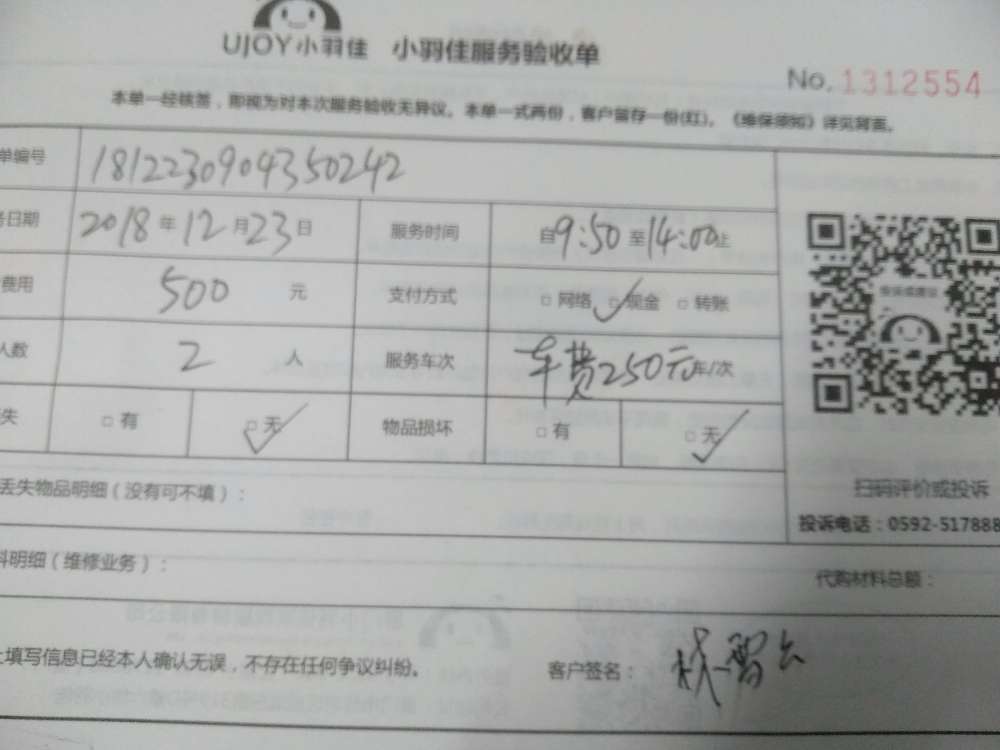 UJOY小羽佳 小羽佳服务验收单
No. 1312554
本单一经核签，即视为对本次服务验收无异议。本单一式两份，客户留存一份(红)。《维保须知》详见背面。
单编号 1812230904350242
务日期 2018年12月23日 服务时间 自9:50至14:00止
费用 500 元 支付方式 □网络 ✓现金 □转账
人数 2 人 服务车次 车费250元 车/次
失 □有 □无 ✓ 物品损坏 □有 □无 ✓
丢失物品明细（没有可不填）：
扫码评价或投诉
投诉电话：0592-517888
料明细（维修业务）：
代购材料总额：
上填写信息已经本人确认无误，不存在任何争议纠纷。 客户签名：